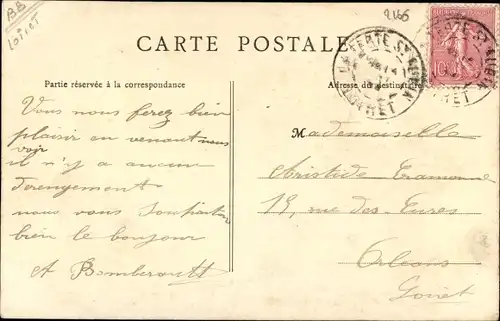 BB
Loiret
2166
CARTE POSTALE
Partie réservée à la correspondance
Adresse du destinataire
LA FERTE ST AUBIN
LOIRET
10
Vous nous ferez bien
plaisir en venant nous
voir
il n'y a aucun
derengement
nous vous souhaiton
bien le bonjour
A
Mademoiselle
Aristide
19, rue des
Orleans
Loiret